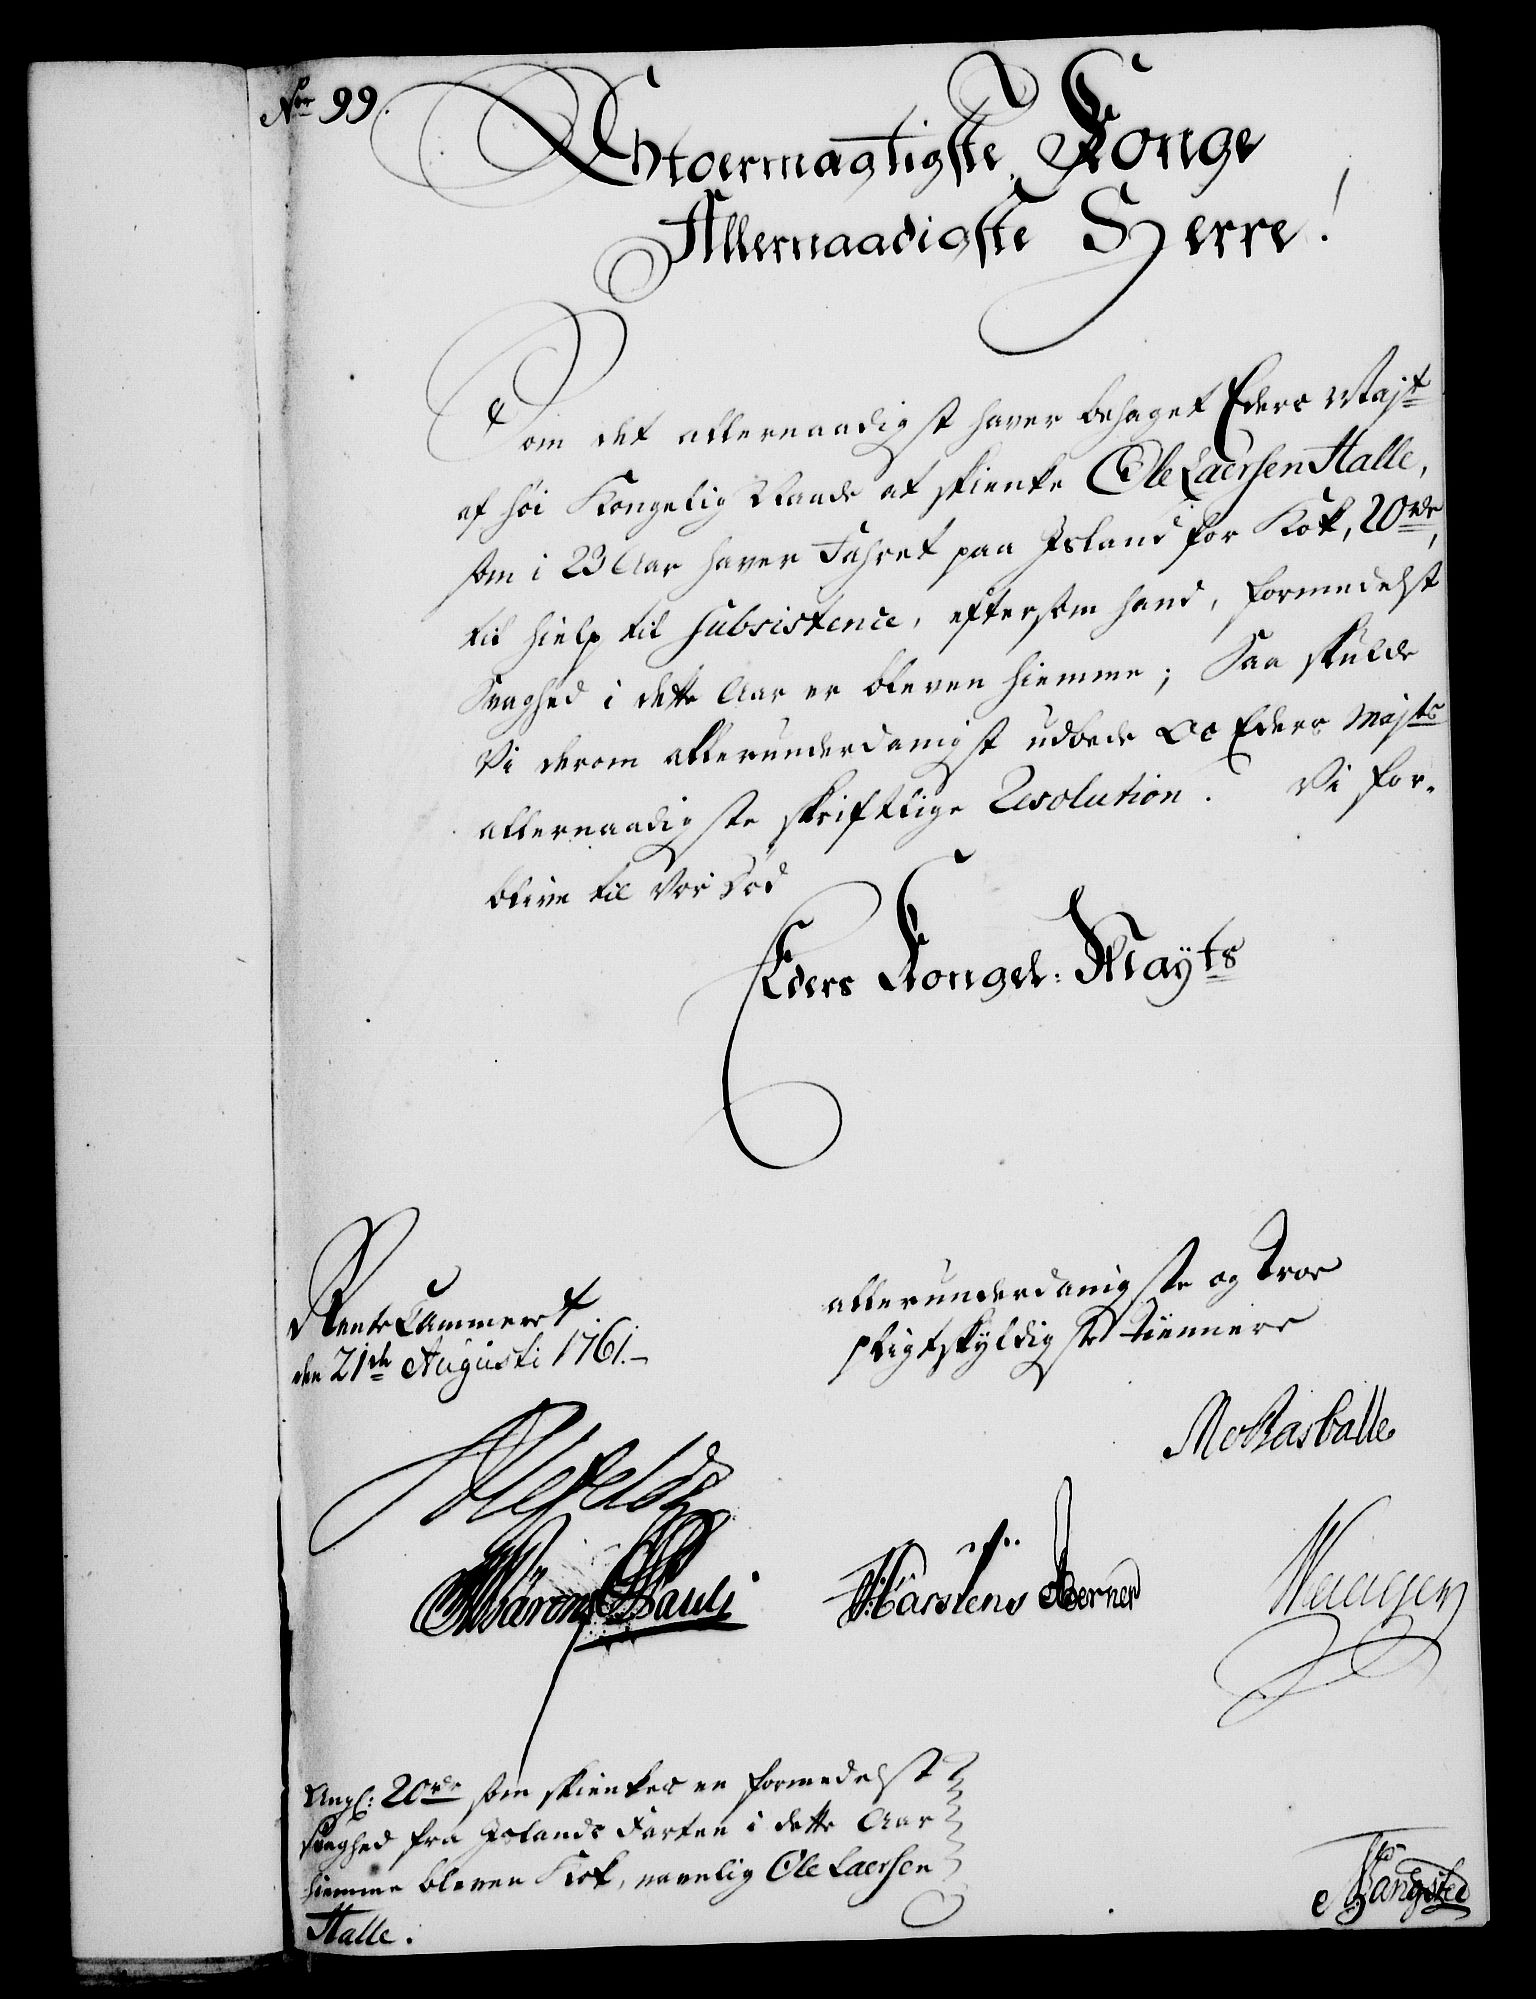 No 99.
Stormægtigste Konge
Allernaadigste Herre!
Som det allernaadigst haver behaget Eders Majt
af høi Kongelig Naade at skienke Ole Laersen Halle,
som i 23 Aar haver Fahret paa Island for Kok, 20 rdr,
til hielp til Subsistence, eftersom hand, formedelst
Svaghed i dette Aar er bleven hiemme; Saa skulde
Vi derom allerunderdanigst udbede os Eders Majts
allernaadigste skriftlige Resolution. Vi for-
blive til Vor Død
Eders Kongel: Mayts
Rente Cammeret
den 21de Augusti 1761.
allerunderdanigste og Troe
pligtskyldigste Tiennere
Ahlefeldt
Pauli
Karstens Berner
Angl: 20 rdr som skienkes en formedelst
Svaghed fra Islands Farten i dette Aar
hiemme bleven Kok, navnlig Ole Laersen
Halle.
Bangsted